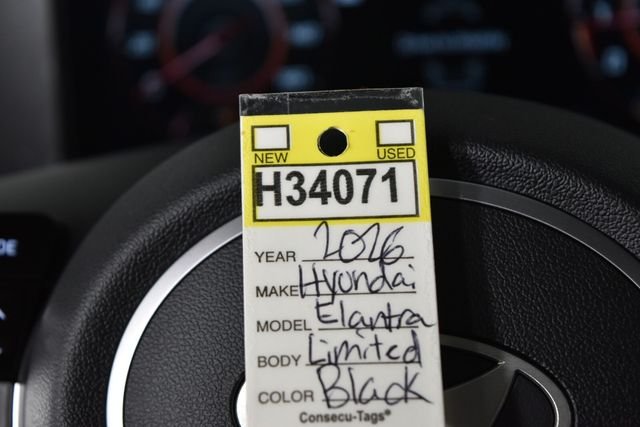 NEW USED
H34071
YEAR 2026
MAKE Hyundai
MODEL Elantra
BODY Limited
COLOR Black
Consecu-Tags®